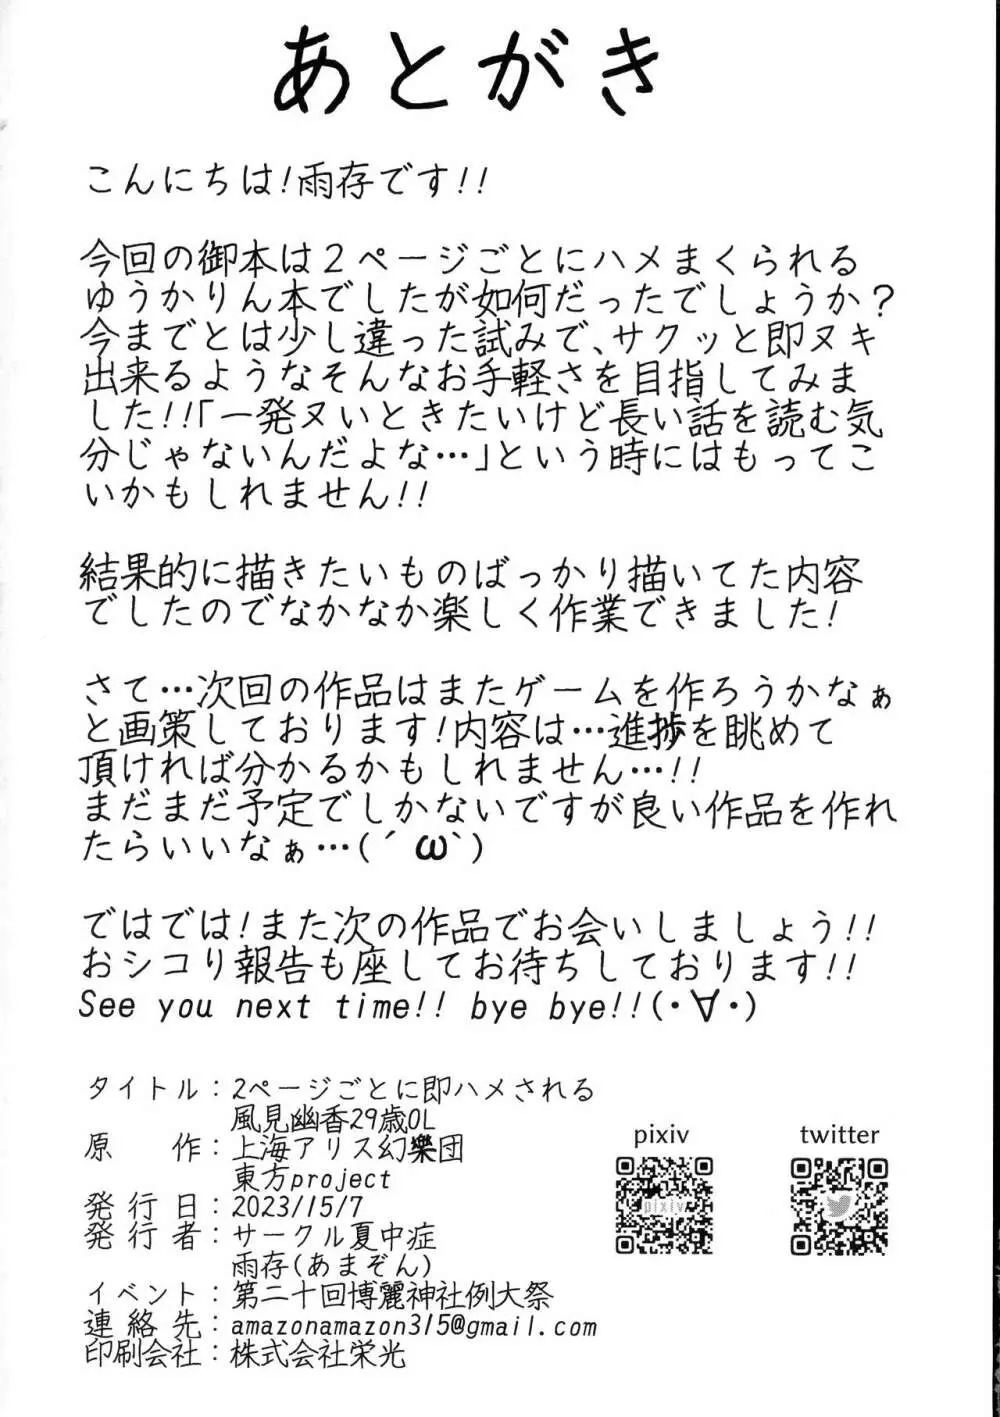 あとがき
こんにちは!雨存です!!
今回の御本は2ページごとにハメまくられる
ゆうかりん本でしたが如何だったでしょうか?
今までとは少し違った試みで、サクッと即ヌキ
出来るようなそんなお手軽さを目指してみま
した!!「一発ヌいときたいけど長い話を読む気
分じゃないんだよな…」という時にはもってこ
いかもしれません!!
結果的に描きたいものばっかり描いてた内容
でしたのでなかなか楽しく作業できました!
さて…次回の作品はまたゲームを作ろうかなぁ
と画策しております!内容は…進捗を眺めて
頂ければ分かるかもしれません…!!
まだまだ予定でしかないですが良い作品を作れ
たらいいなぁ…(´ω`)
ではでは!また次の作品でお会いしましょう!!
おシコり報告も座してお待ちしております!!
See you next time!! bye bye!!(・∀・)
タイトル:2ページごとに即ハメされる
風見幽香29歳OL
原作:上海アリス幻樂団
東方project
発行日:2023/15/7
発行者:サークル夏中症
雨存(あまぞん)
イベント:第二十回博麗神社例大祭
連絡先:amazonamazon315@gmail.com
印刷会社:株式会社栄光
pixiv
pixiv
twitter